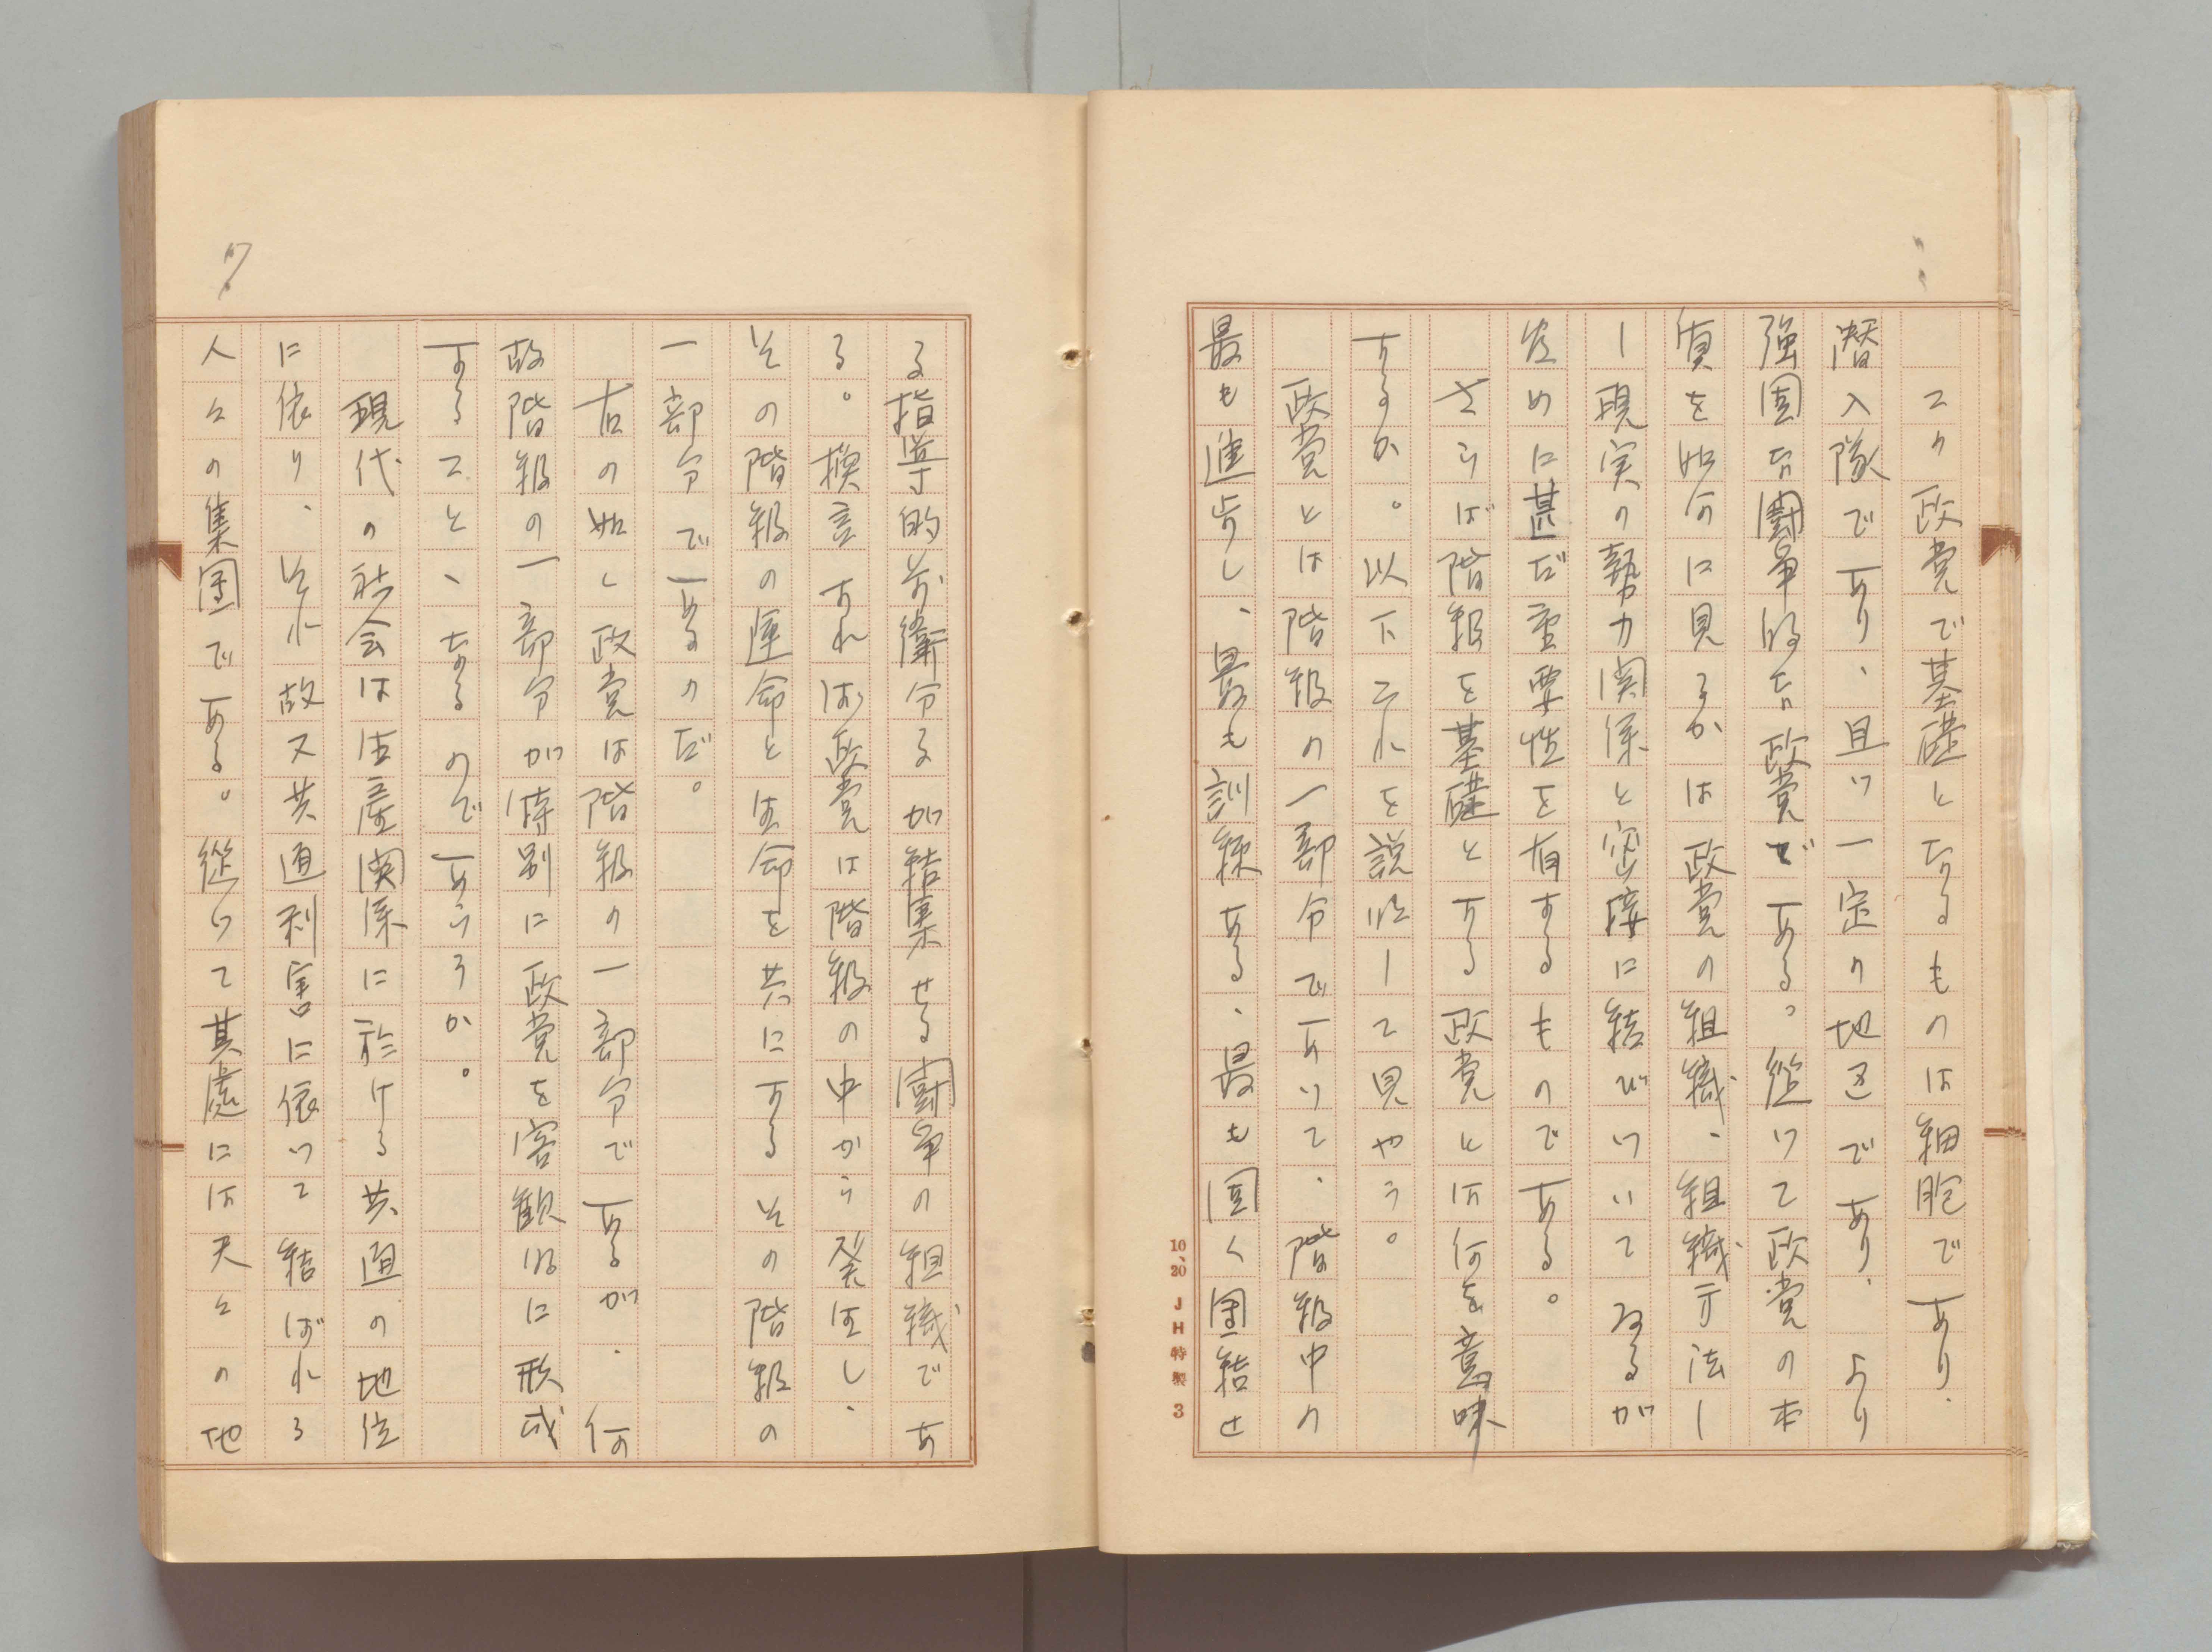 この政党で基礎となるものは細胞であり、
潜入隊であり、且つ一定の地区であり、より
強固な闘争的な政党である。従つて政党の本
質を如何に見るかは政党の組織、組織方法ー
ー現実の勢力関係と密接に結びついてゐるが
為めに甚だ重要性を有するものである。
さらば階級を基礎とする政党とは何を意味
するか。以下これを説明して見やう。
政党とは階級の一部分であつて、階級中の
最も進歩し、最も訓練ある、最も固く団結せ
10、20 JH特製 3
7.
る指導的前衛分子が結集せる闘争の組織であ
る。換言すれば政党は階級の中から発生し、
その階級の運命と生命を共にするその階級の
一部分であるのだ。
右の如く政党は階級の一部分であるが、何
故階級の一部分が特別に政党を客観的に形成
すること、なるのであらうか。
現代の社会は生産関係に於ける共通の地位
に依り、それ故又共通利害に依つて結ばれる
人々の集団である。従つて其處には夫々の地